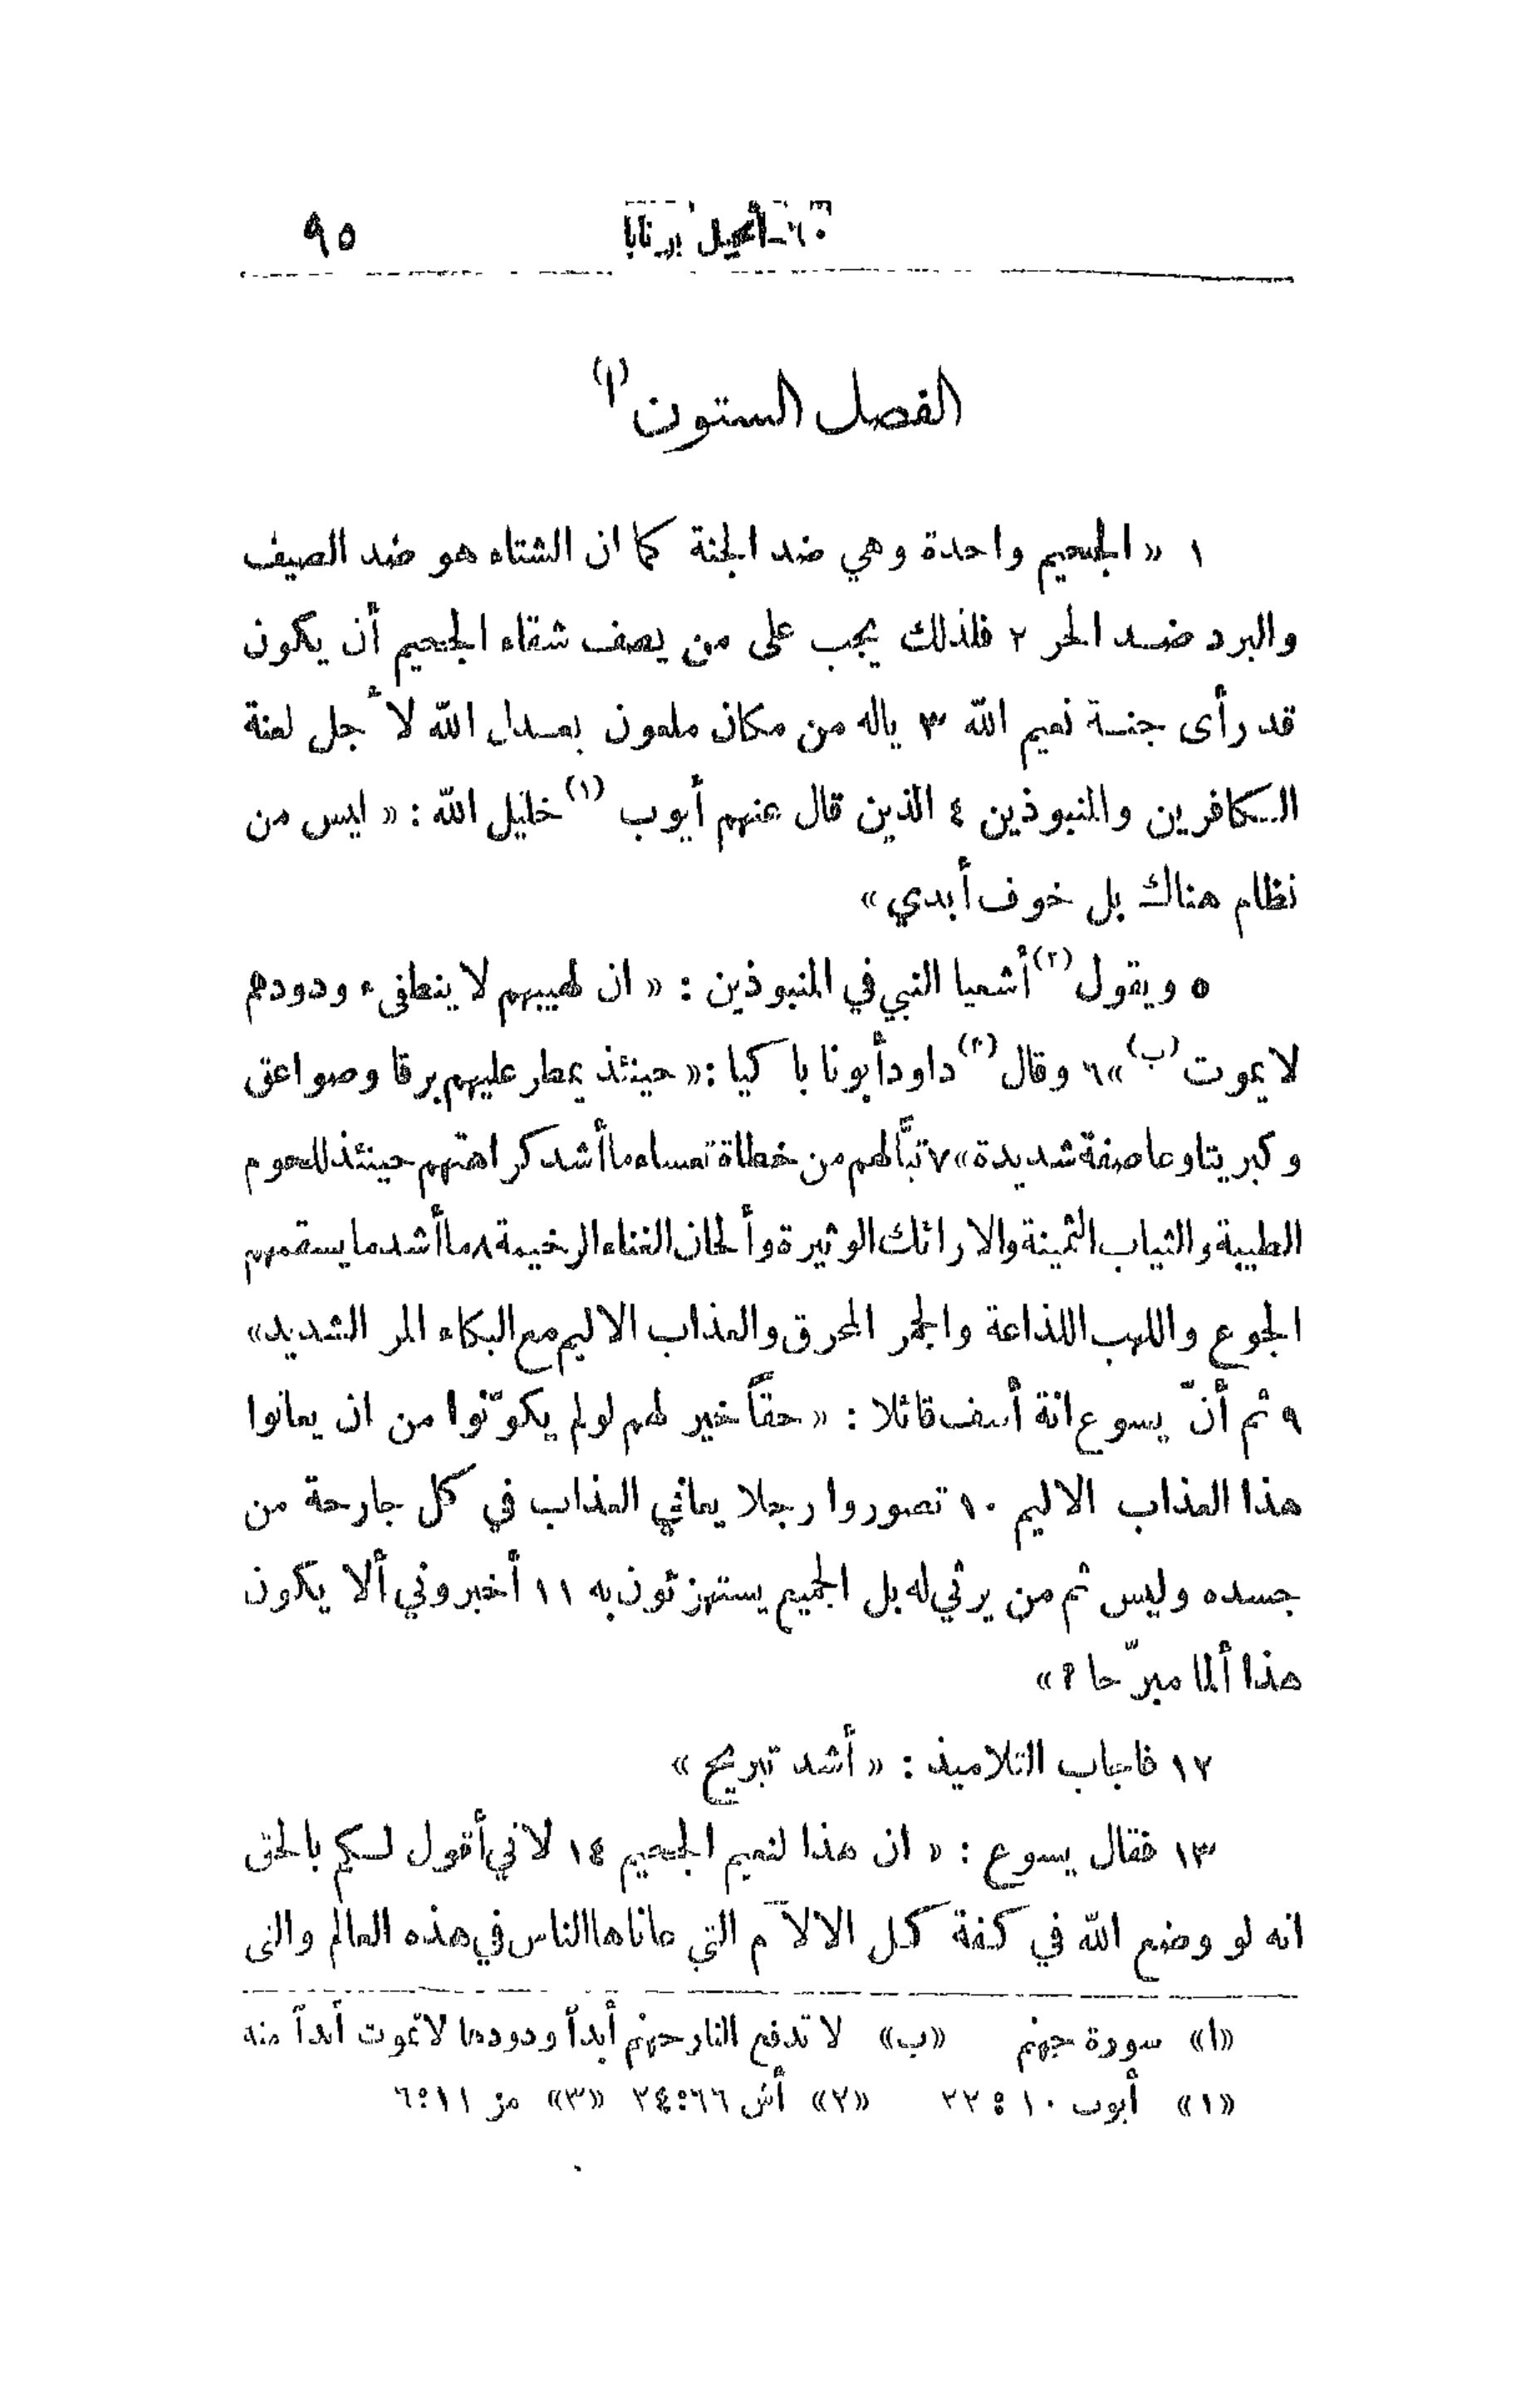 ٦٠-أنجيل برنابا ٩٥
الفصل الستون (ا)
١ «الجحيم واحدة وهي ضد الجنة كما ان الشتاء هو ضد الصيف
والبرد ضد الحر ٢ فلذلك يجب على من يصف شقاء الجحيم أن يكون
قد رأى جنة نعيم الله ٣ ياله من مكان ملعون بعدل الله لأجل لعنة
الكافرين والمنبوذين ٤ الذين قال عنهم أيوب (١) خليل الله : « ليس من
نظام هناك بل خوف أبدي »
٥ ويقول (٢) أشعيا النبي في المنبوذين : « ان لهيبهم لا ينطفىء ودودهم
لا يموت (ب) » ٦ وقال (٣) داود أبونا باكيا : « حينئذ يمطر عليهم برقا وصواعق
وكبريتا وعاصفة شديدة » ٧ تبًّا لهم من خطاة تعساء ما أشد كراهتهم حينئذ للحوم
الطيبة والثياب الثمينة والارائك الوثيرة وألحان الغناء الرخيمة ٨ ما أشد ما يسقمهم
الجوع واللهب اللذاعة والجمر المحرق والعذاب الاليم مع البكاء المر الشديد »
٩ ثم أنّ يسوع انة أسف قائلا : « حقاً خير لهم لو لم يكوّنوا من ان يعانوا
هذا العذاب الاليم ١٠ تصوروا رجلا يعاني العذاب في كل جارحة من
جسده وليس ثم من يرثي له بل الجميع يستهزئون به ١١ أخبروني ألا يكون
هذا ألما مبرّحا ؟ »
١٢ فاجاب التلاميذ : « أشد تبريح »
١٣ فقال يسوع : « ان هذا لنعيم الجحيم ١٤ لاني أقول لكم بالحق
انه لو وضع الله في كفة كل الالآم التي عاناها الناس في هذه العالم والتى
«ا» سورة جهنم «ب» لا تدفع النار جهنم أبداً ودودها لا تموت أبداً منه
«١» أيوب ١٠ : ٢٢ «٢» أش ٦٦:٢٤ «٣» مز ١١:٦